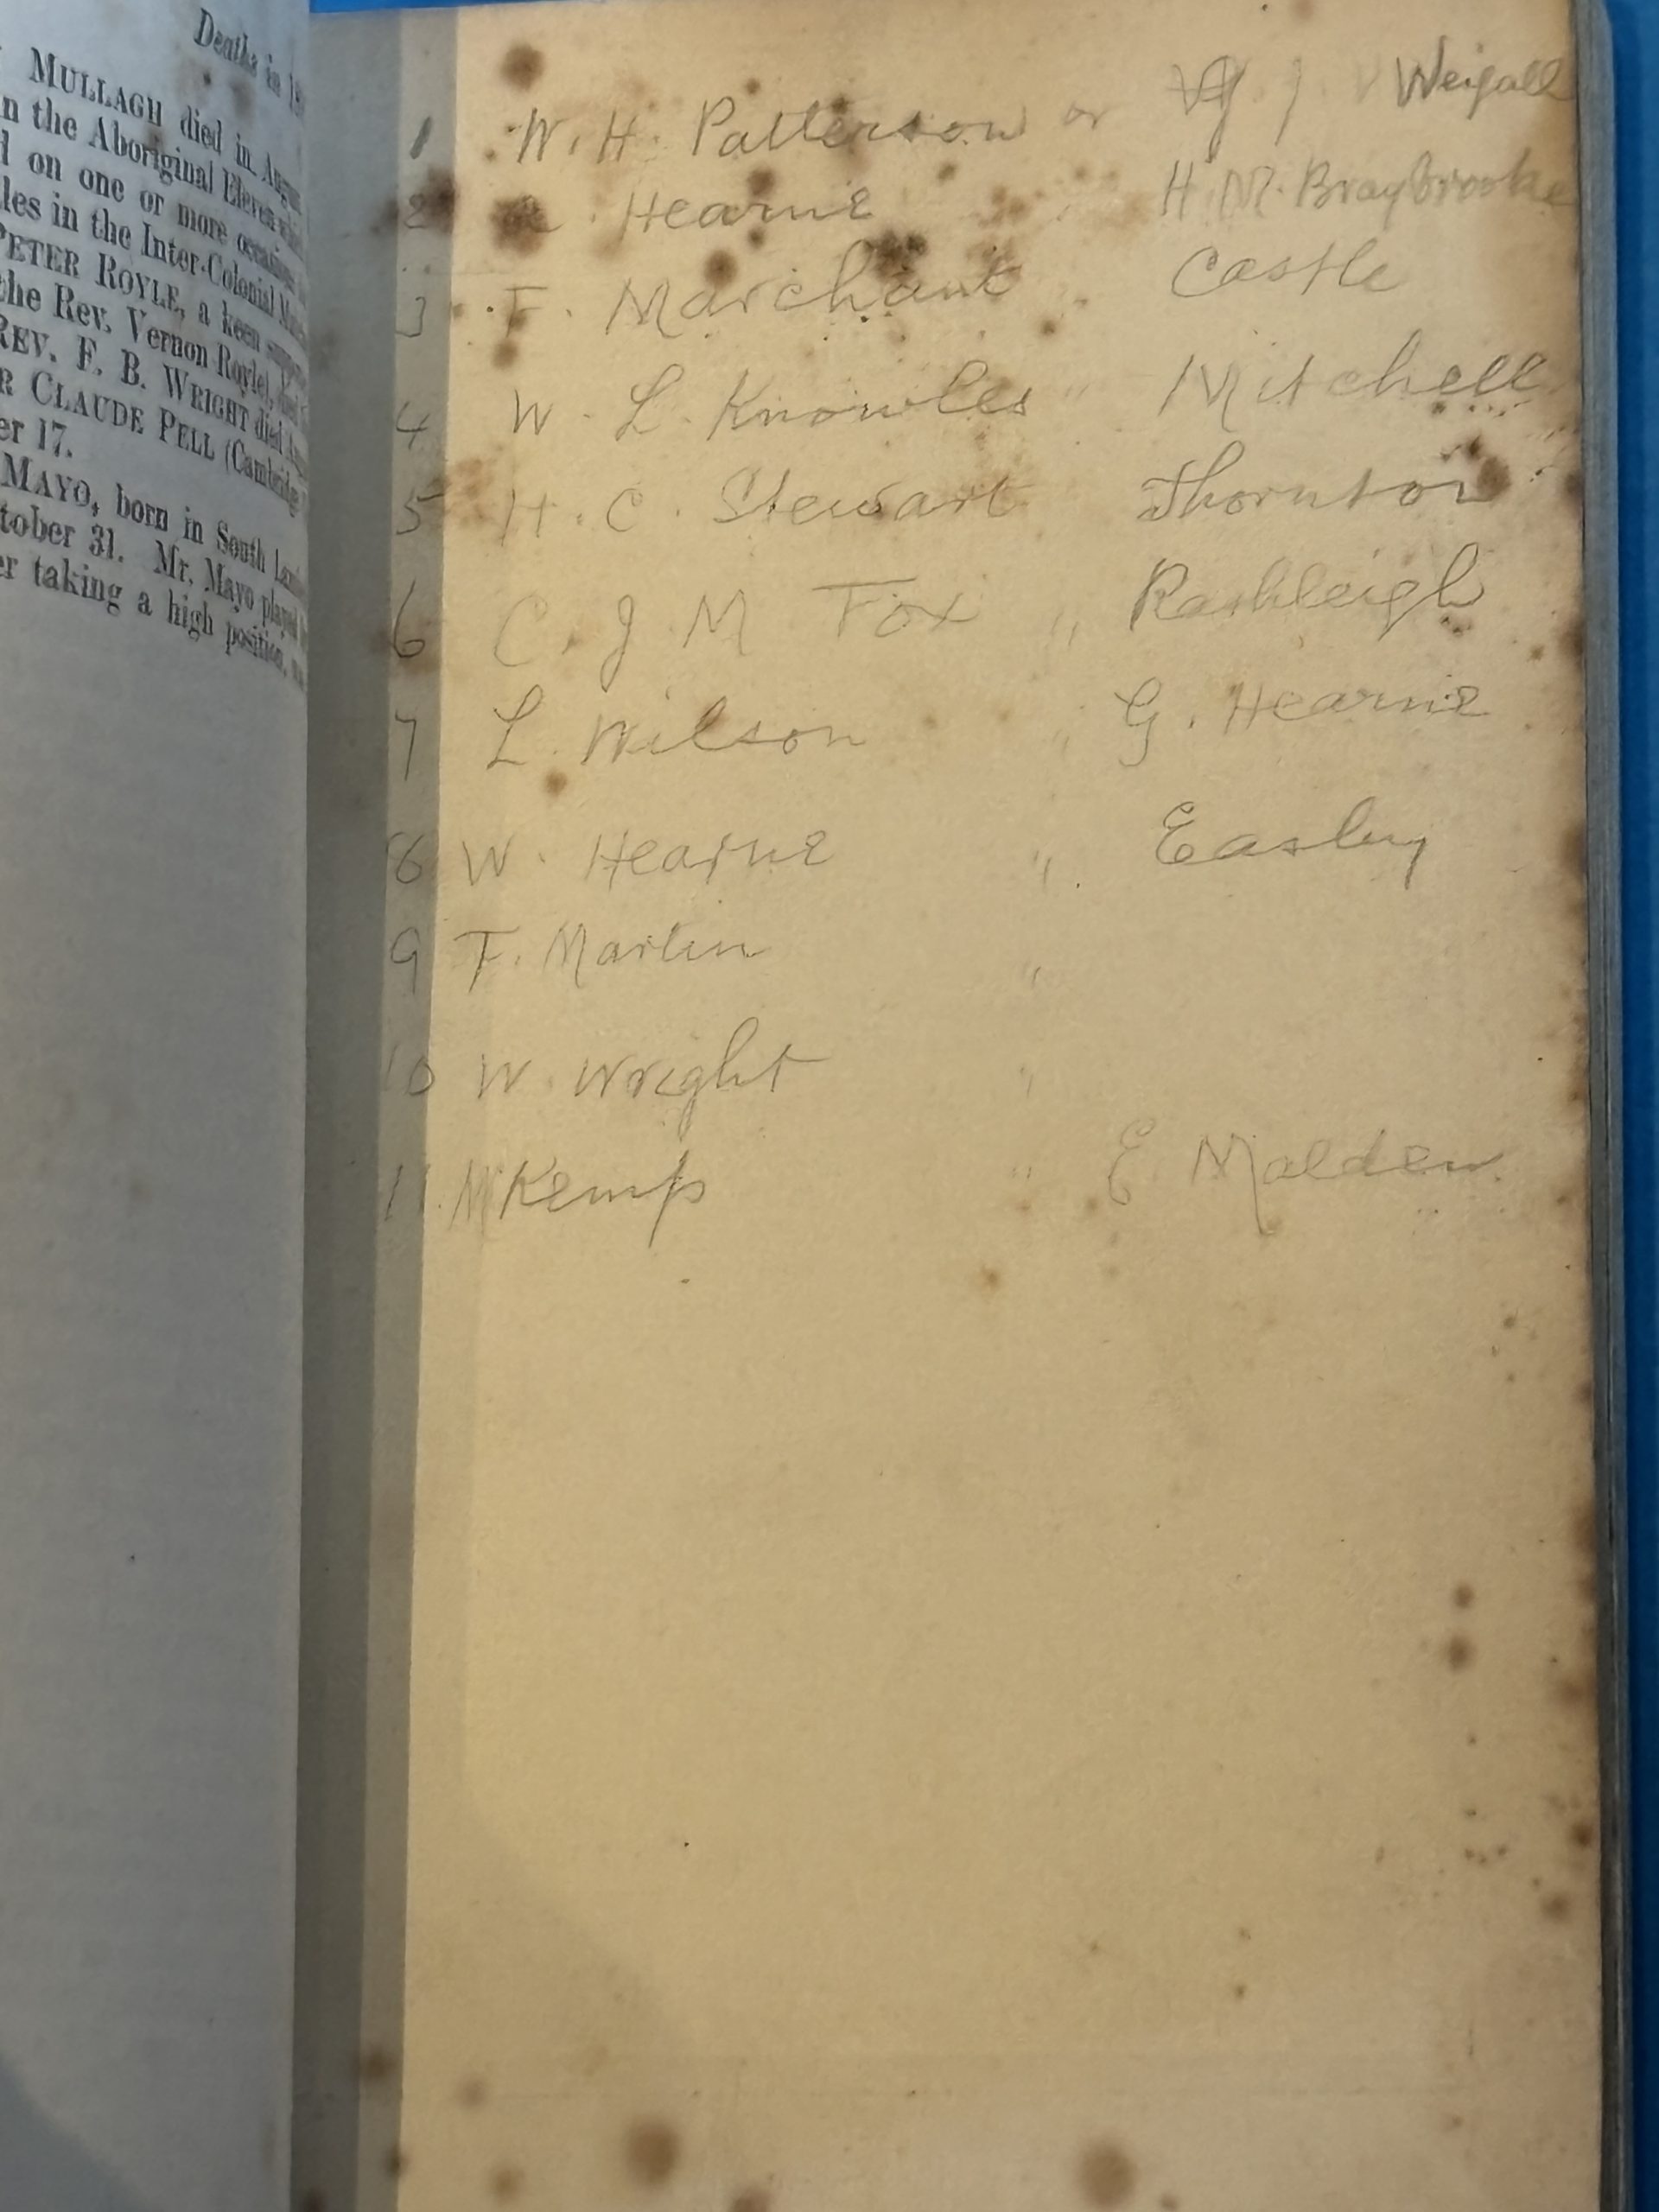 Deaths in
MULLAGH died in
n the Aboriginal Eleven
on one or more
les in the Inter-Colonial
PETER ROYLE, a keen
the Rev. Vernon Royle),
REV. F. B. WRIGHT died
R CLAUDE PELL (Cambridge
er 17.
MAYO, born in South
tober 31. Mr. Mayo played
er taking a high position,
1 W. H. Patterson or Weigall
2 Hearne " H. M. Braybrooke
3 F. Marchant " Castle
4 W. L. Knowles " Mitchell
5 H. C. Stewart " Thornton
6 C. J. M Fox " Rashleigh
7 L. Wilson " G. Hearne
8 W. Hearne " Easley
9 F. Martin "
10 W. Wright "
11. M Kemp " E. Malden